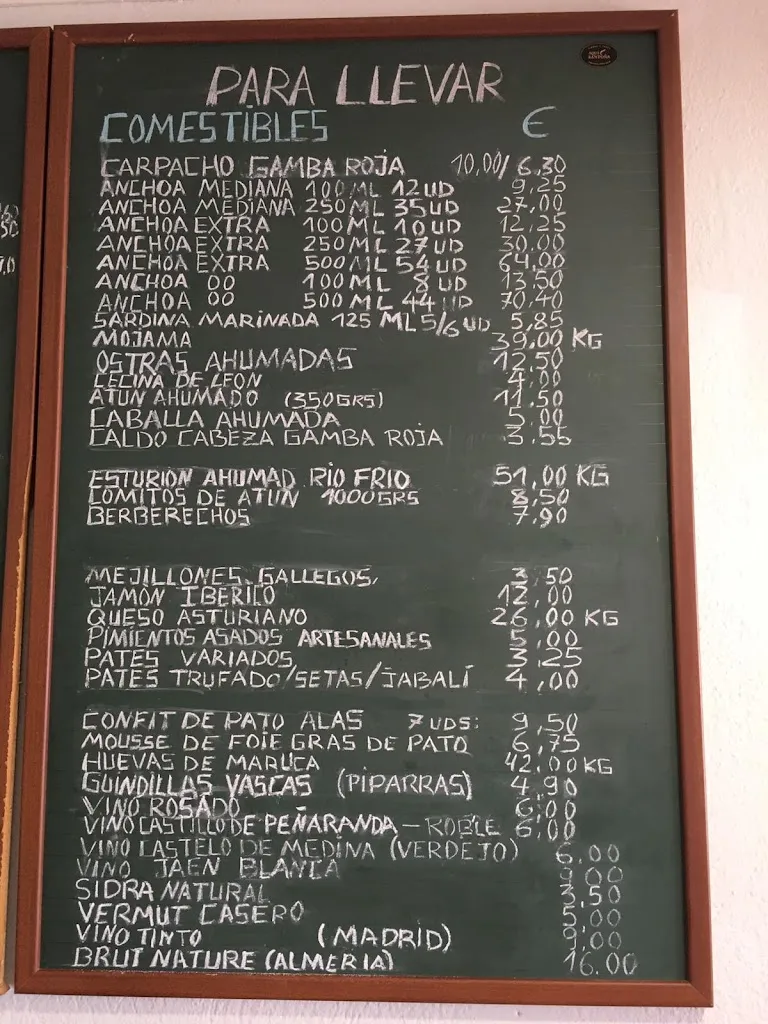 PARA LLEVAR
COMESTIBLES €
CARPACHO GAMBA ROJA 10,00/6,30
ANCHOA MEDIANA 100 ML 12 UD 9,25
ANCHOA MEDIANA 250 ML 35 UD 27,00
ANCHOA EXTRA 100 ML 10 UD 12,25
ANCHOA EXTRA 250 ML 27 UD 30,00
ANCHOA EXTRA 500 ML 54 UD 64,00
ANCHOA 00 100 ML 8 UD 13,50
ANCHOA 00 500 ML 44 UD 70,40
SARDINA MARINADA 125 ML 5/6 UD 5,85
MOJAMA 39,00 KG
OSTRAS AHUMADAS 12,50
CECINA DE LEON 4,00
ATUN AHUMADO (350GRS) 11,50
CABALLA AHUMADA 5,00
CALDO CABEZA GAMBA ROJA 3,55
ESTURION AHUMAD RIO FRIO 51,00 KG
LOMITOS DE ATUN 1000GRS 8,50
BERBERECHOS 7,90
MEJILLONES GALLEGOS, 3,50
JAMON IBERICO 12,00
QUESO ASTURIANO 26,00 KG
PIMIENTOS ASADOS ARTESANALES 5,00
PATES VARIADOS 3,25
PATES TRUFADO/SETAS/JABALÍ 4,00
CONFIT DE PATO ALAS 7 UDS: 9,50
MOUSSE DE FOIE GRAS DE PATO 6,75
HUEVAS DE MARUCA 42,00 KG
GUINDILLAS VASCAS (PIPARRAS) 4,90
VINO ROSADO 6,00
VINO CASTILLO DE PEÑARANDA - ROBLE 6,00
VINO CASTELO DE MEDINA (VERDEJO) 6.00
VINO JAEN BLANCA 9,00
SIDRA NATURAL 3,50
VERMUT CASERO 5,00
VINO TINTO (MADRID) 9,00
BRUT NATURE (ALMERIA) 16.00